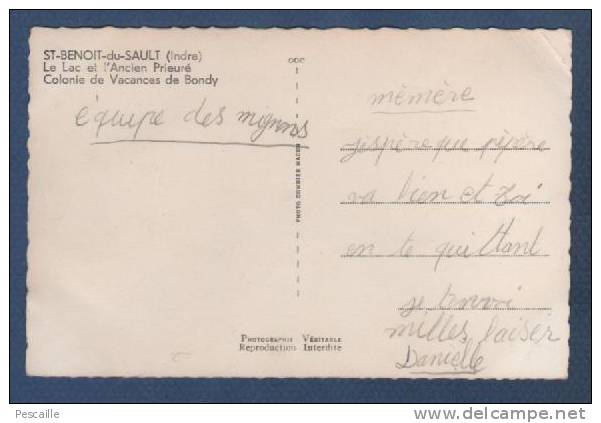 ST-BENOIT-du-SAULT (Indre)
Le Lac et l'Ancien Prieuré
Colonie de Vacances de Bondy
équipe des mignons
PHOTO COMBIER MACON
PHOTOGRAPHIE VÉRITABLE
Reproduction Interdite
mémère
j'éspère que pépère
va bien et toi
en te quittant
je tenvoi
milles baiser
Danielle
Pescaille
www.delcampe.net